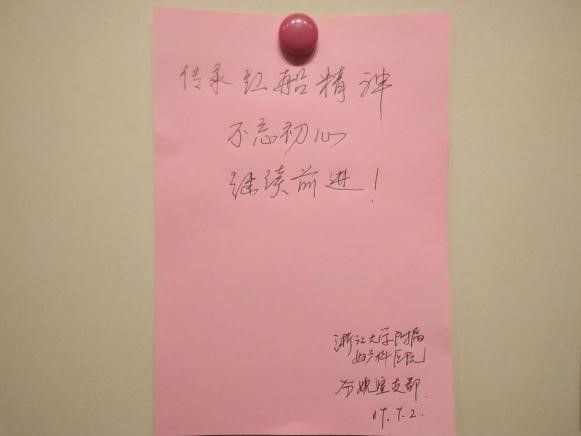 传承红船精神
不忘初心
继续前进！
浙江大学附属
妇产科医院
支部
17.7.2.